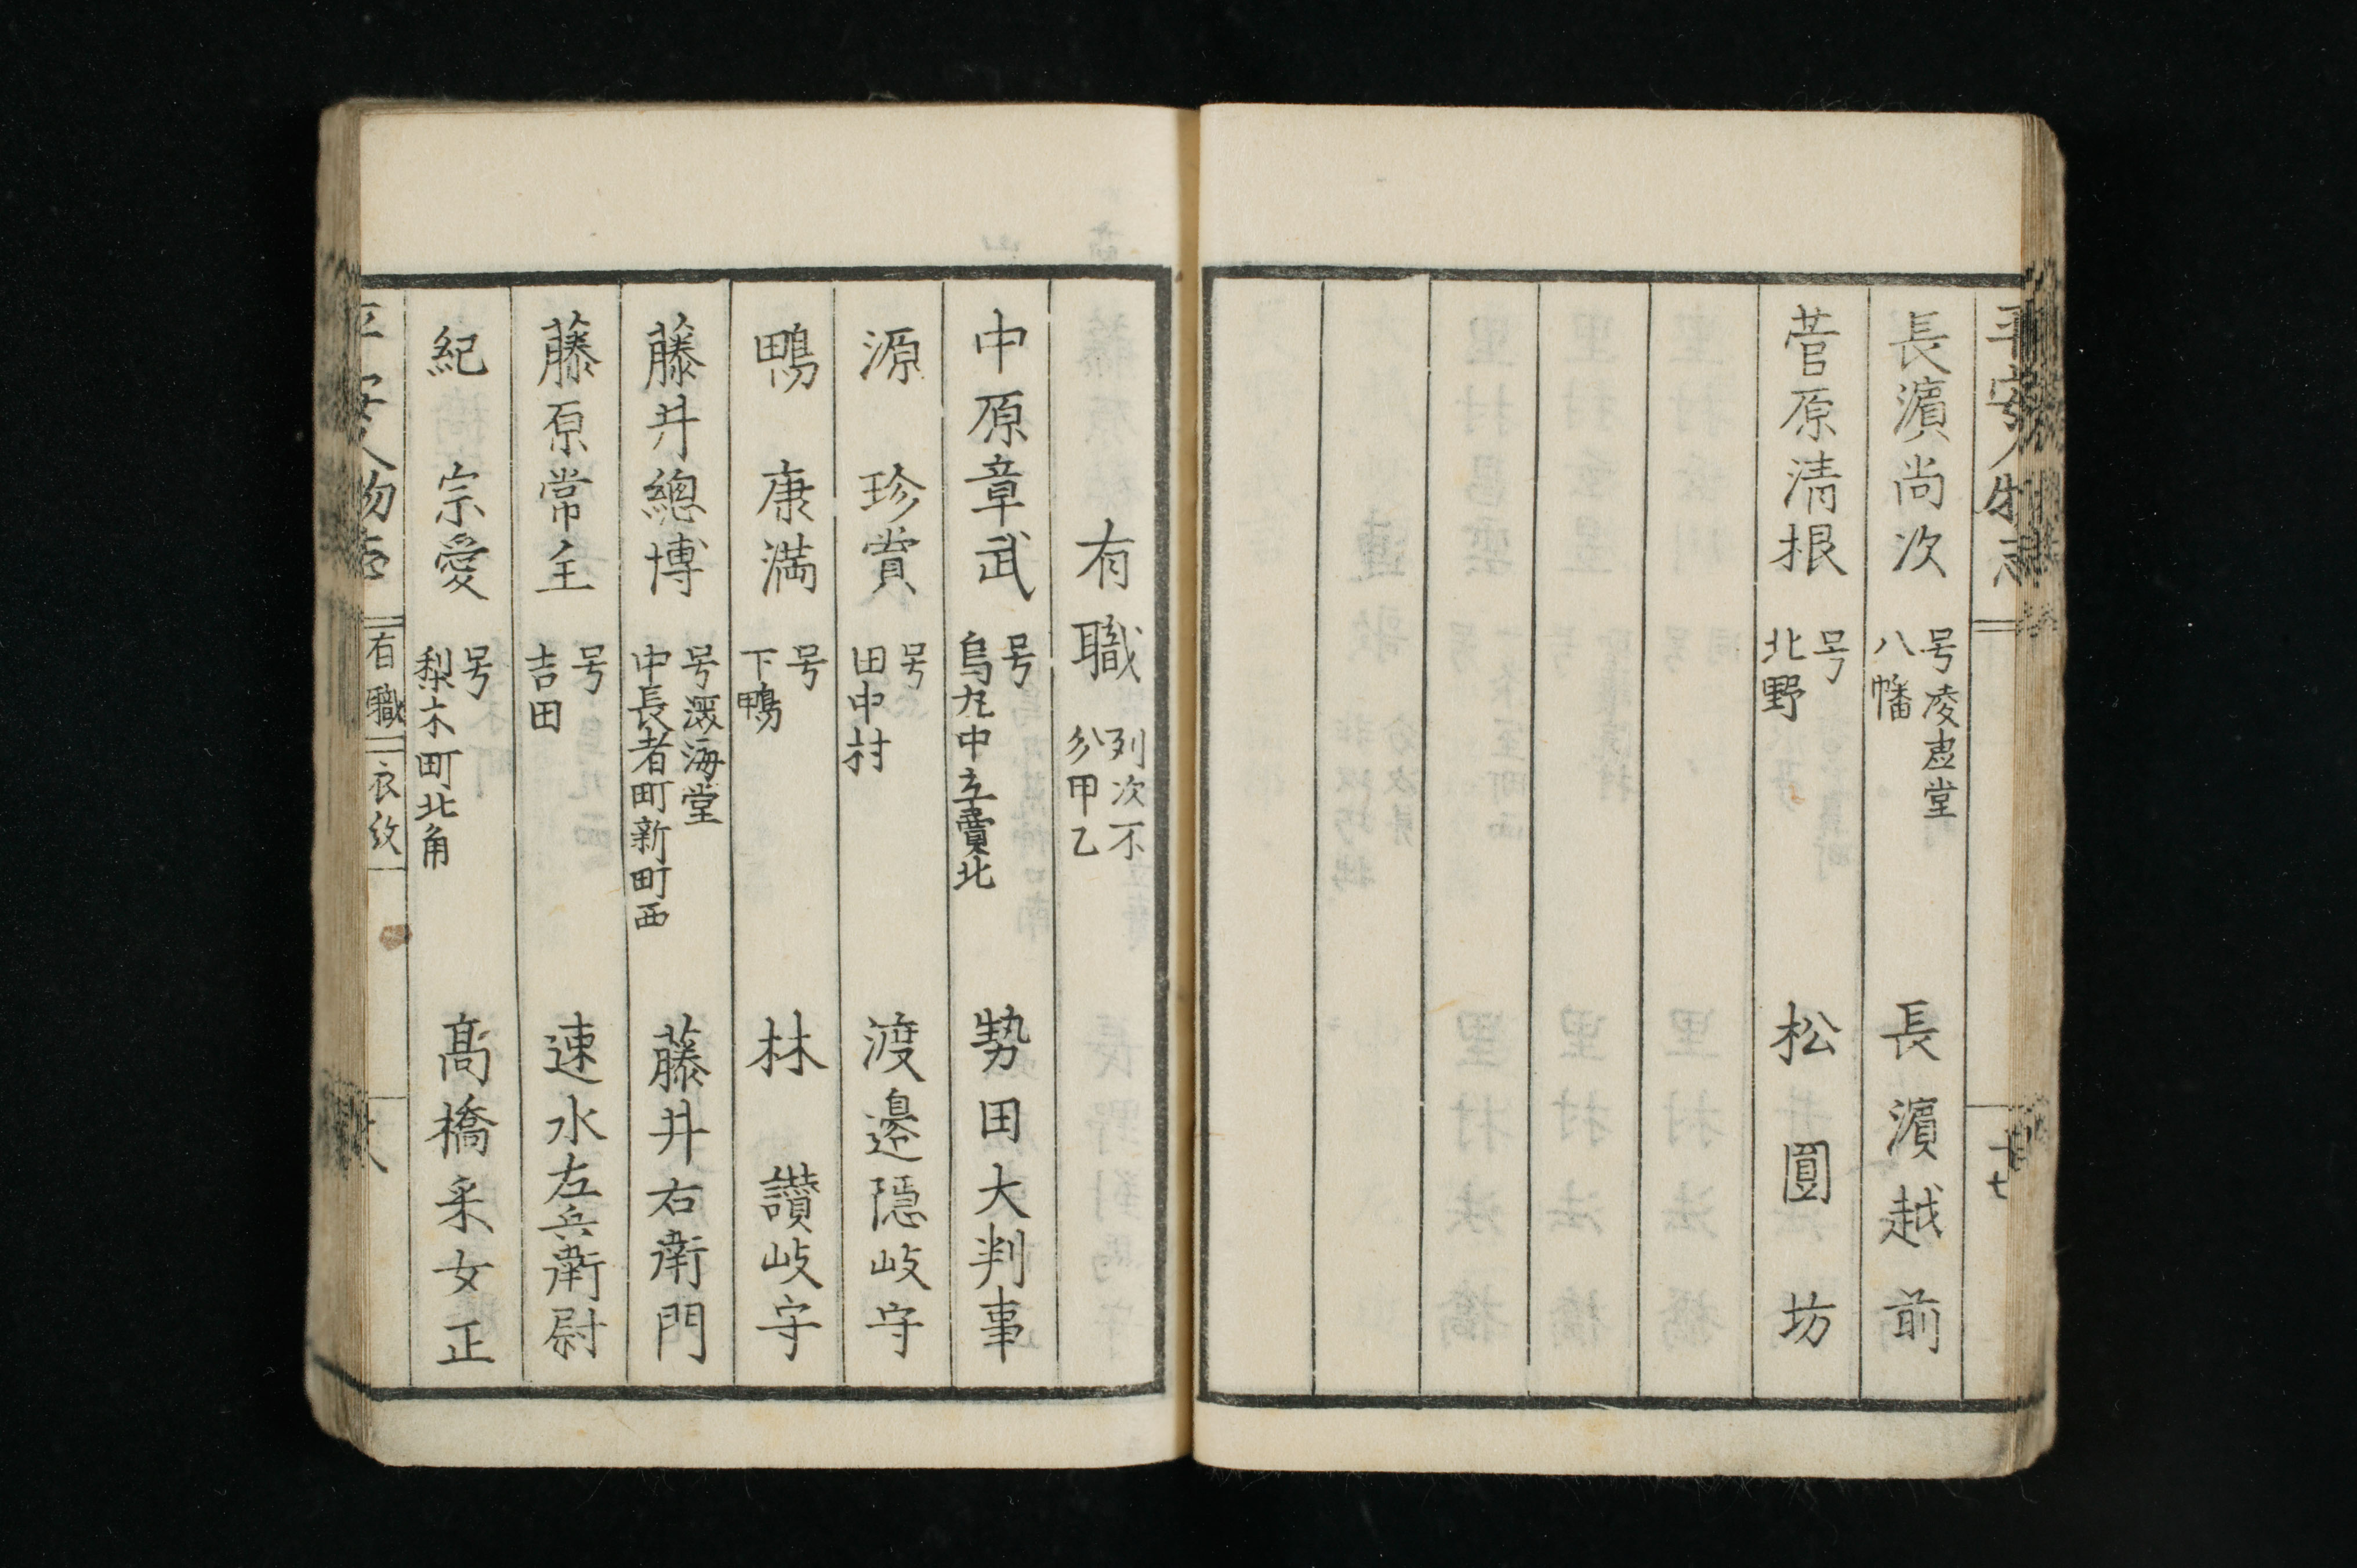 平安人物志
十七
長濵尚次 号凌虚堂 八幡 長濵越前
菅原清根 号 北野 松圓坊
有職 列次不分甲乙
中原章武 号 烏丸中立賣北 勢田大判事
源珍賞 号 田中村 渡邉隠岐守
鴨康満 号 下鴨 林讃岐守
藤井總博 号 海堂 中長者町新町西 藤井右衛門
藤原常主 号 吉田 速水左兵衛尉
紀宗愛 号 梨木町北角 髙橋采女正
平安人物志 有職 衣紋